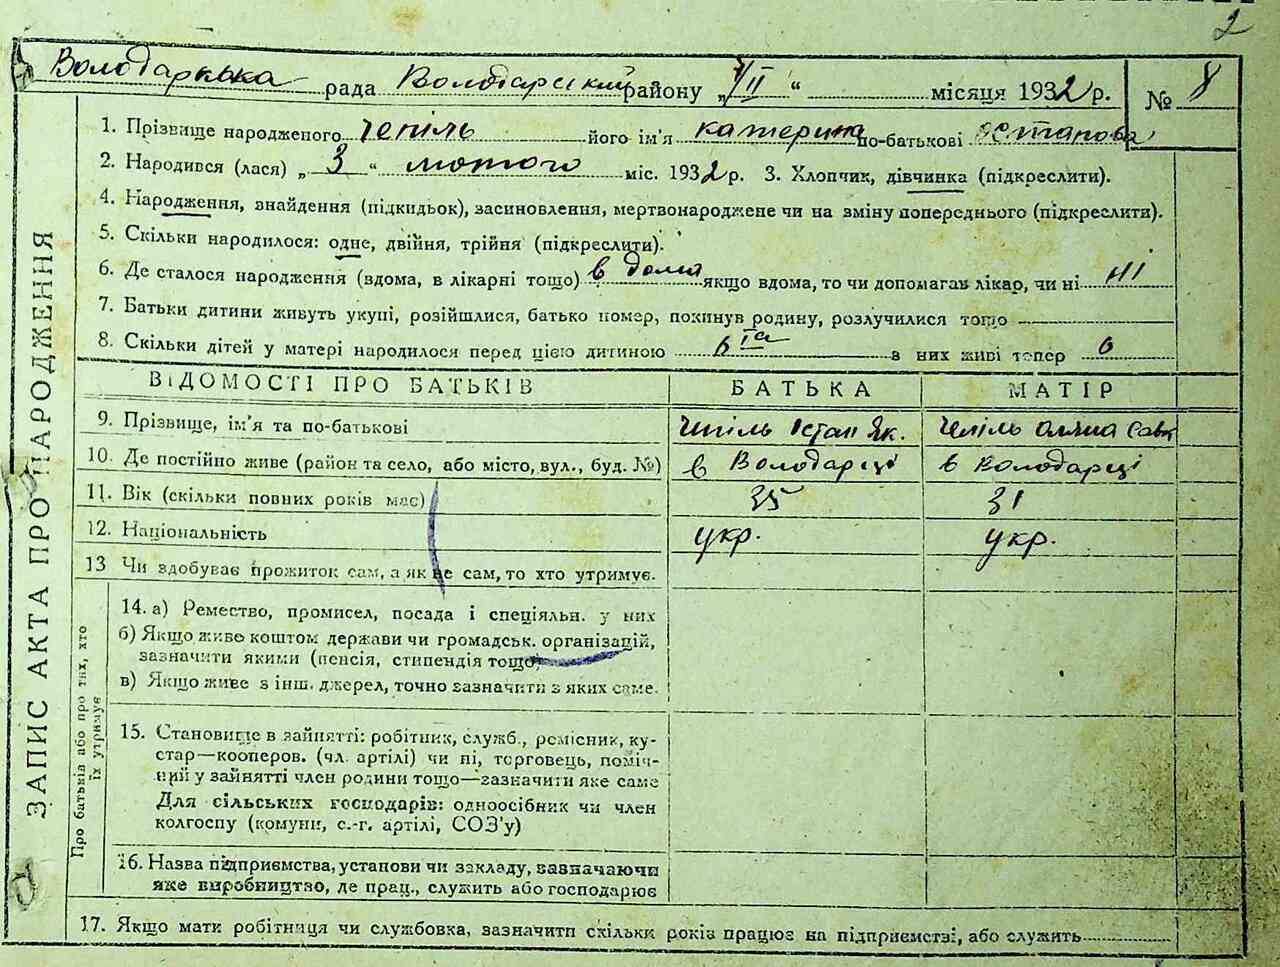 2
Володарська рада Володарський району „7/II“ місяця 1932 р. № 8
ЗАПИС АКТА ПРО НАРОДЖЕННЯ
1. Прізвище народженого Чепіль його ім'я катерина по-батькові Остапова
2. Народився (лася) „3“ лютого міс. 1932 р. 3. Хлопчик, дівчинка (підкреслити).
4. Народження, знайдення (підкидьок), засиновлення, мертвонароджене чи на зміну попереднього (підкреслити).
5. Скільки народилося: одне, двійня, трійня (підкреслити).
6. Де сталося народження (вдома, в лікарні тощо) в дома якщо вдома, то чи допомагав лікар, чи ні ні
7. Батьки дитини живуть укупі, розійшлися, батько помер, покинув родину, розлучилися тощо
8. Скільки дітей у матері народилося перед цією дитиною з них живі тепер 6
ВІДОМОСТІ ПРО БАТЬКІВ БАТЬКА МАТІР
9. Прізвище, ім'я та по-батькові Чепіль Остап Як. Чепіль Оляна Савк
10. Де постійно живе (район та село, або місто, вул., буд. №) в Володарці в Володарці
11. Вік (скільки повних років має) 35 31
12. Національність укр. укр.
13 Чи здобуває прожиток сам, а як не сам, то хто утримує.
Про батьків або про тих, хто
їх утримує
14. а) Ремество, промисел, посада і спеціяльн. у них
б) Якщо живе коштом держави чи громадськ. організацій,
зазначити якими (пенсія, стипендія тощо)
в) Якщо живе з інш. джерел, точно зазначити з яких саме.
15. Становище в зайнятті: робітник, служб., ремісник, ку-
стар—кооперов. (чл. артілі) чи ні, торговець, поміч-
ний у зайнятті член родини тощо—зазначити яке саме
Для сільських господарів: одноосібник чи член
колгоспу (комуни, с.-г. артілі, СОЗ'у)
16. Назва підприємства, установи чи закладу, зазначаючи
яке виробництво, де прац., служить або господарює
17. Якщо мати робітниця чи службовка, зазначити скільки років працює на підприємстві, або служить